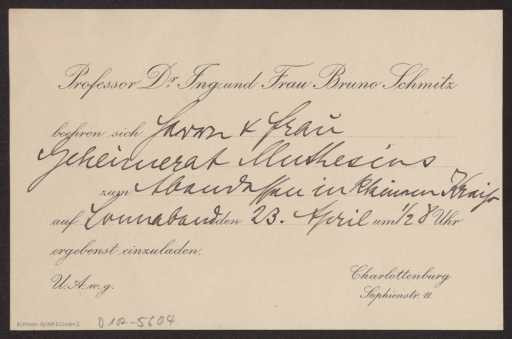 Professor Dr. Ing. und Frau Bruno Schmitz
beehren sich Herrn & Frau
Geheimerat Muthesius
zum Abendessen in kleinem Kreise
auf Sonnabend den 23. April um ½ 8 Uhr
ergebenst einzuladen.
U.A.w.g.
Charlottenburg
Sophienstr. 11
D 102-5604